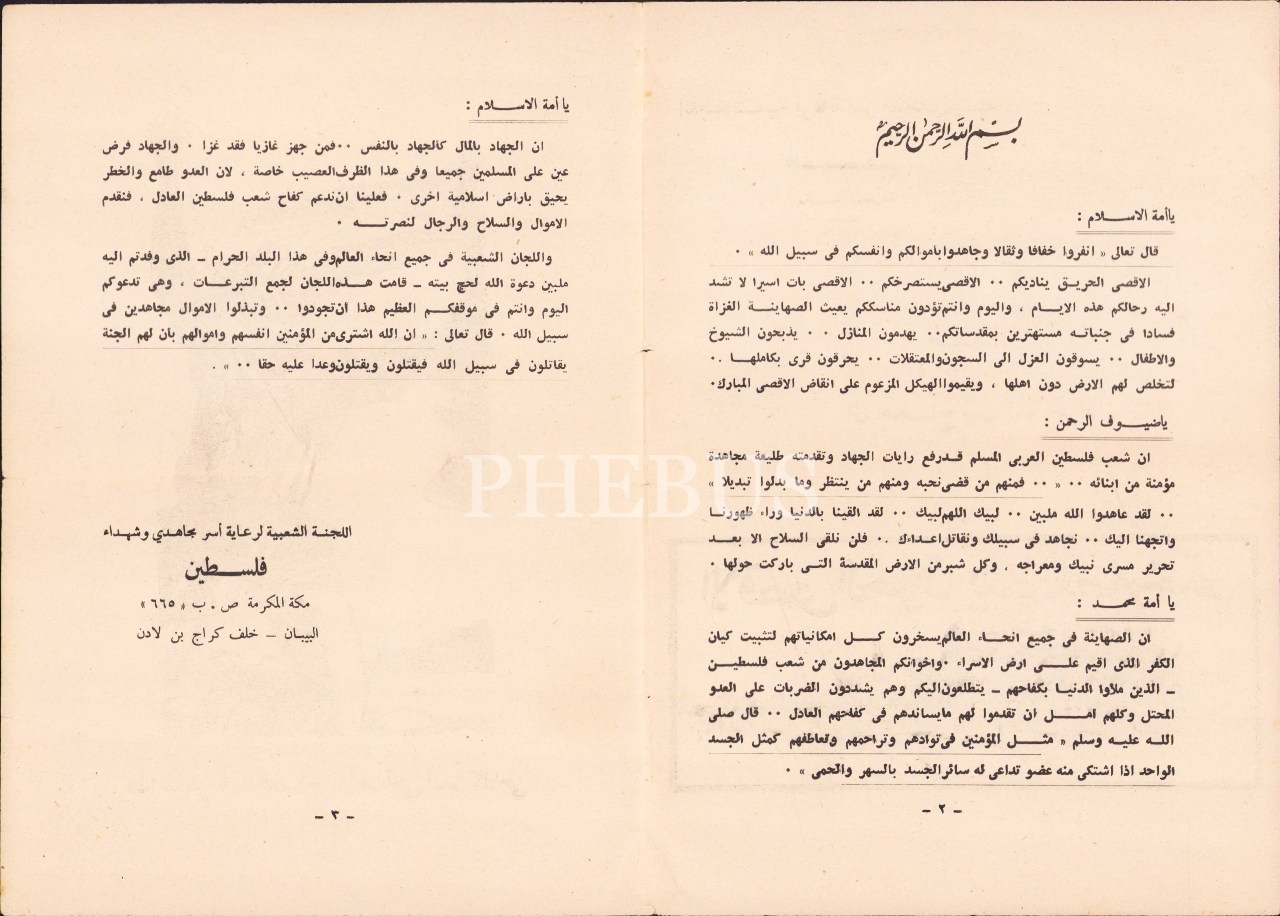 بسم الله الرحمن الرحيم
ياأمة الاسلام :
قال تعالى « انفروا خفافا وثقالا وجاهدوا باموالكم وانفسكم فى سبيل الله » ٠
الاقصى الحريق يناديكم ٠٠ الاقصى يستصرخكم ٠٠ الاقصى بات اسيرا لا تشد
اليه رحالكم هذه الايام ، واليوم وانتم تؤدون مناسككم يعيث الصهاينة الغزاة
فسادا فى جنباته مستهترين بمقدساتكم ٠٠ يهدمون المنازل ٠٠ يذبحون الشيوخ
والاطفال ٠٠ يسوقون العزل الى السجون والمعتقلات ٠٠ يحرقون قرى بكاملها ٠٠
لتخلص لهم الارض دون اهلها ، ويقيموا الهيكل المزعوم على انقاض الاقصى المبارك ٠
ياضيوف الرحمن :
ان شعب فلسطين العربى المسلم قد رفع رايات الجهاد وتقدمته طليعة مجاهدة
مؤمنة من ابنائه ٠٠ « ٠٠ فمنهم من قضى نحبه ومنهم من ينتظر وما بدلوا تبديلا »
٠٠ لقد عاهدوا الله ملبين ٠٠ لبيك اللهم لبيك ٠٠ لقد القينا بالدنيا وراء ظهورنا
واتجهنا اليك ٠٠ نجاهد فى سبيلك ونقاتل اعداءك ٠٠ فلن نلقى السلاح الا بعد
تحرير مسرى نبيك ومعراجه ، وكل شبر من الارض المقدسة التى باركت حولها ٠
يا أمة محمد :
ان الصهاينة فى جميع انحاء العالم يسخرون كل امكانياتهم لتثبيت كيان
الكفر الذى اقيم على ارض الاسراء ٠ واخوانكم المجاهدون من شعب فلسطين
ـ الذين ملاوا الدنيا بكفاحهم ـ يتطلعون اليكم وهم يشددون الضربات على العدو
المحتل وكلهم امل ان تقدموا لهم مايساندهم فى كفاحهم العادل ٠٠ قال صلى
الله عليه وسلم « مثل المؤمنين فى توادهم وتراحمهم وتعاطفهم كمثل الجسد
الواحد اذا اشتكى منه عضو تداعى له سائر الجسد بالسهر والحمى » ٠
- ٢ -
يا أمة الاسلام :
ان الجهاد بالمال كالجهاد بالنفس ٠٠ فمن جهز غازيا فقد غزا ٠ والجهاد فرض
عين على المسلمين جميعا وفى هذا الظرف العصيب خاصة ، لان العدو طامع والخطر
يحيق باراض اسلامية اخرى ٠ فعلينا ان ندعم كفاح شعب فلسطين العادل ، فنقدم
الاموال والسلاح والرجال لنصرته ٠
واللجان الشعبية فى جميع انحاء العالم وفى هذا البلد الحرام ـ الذى وفدتم اليه
ملبين دعوة الله لحج بيته ـ قامت هذه اللجان لجمع التبرعات ، وهى تدعوكم
اليوم وانتم فى موقفكم العظيم هذا ان تجودوا ٠٠ وتبذلوا الاموال مجاهدين فى
سبيل الله ٠ قال تعالى : « ان الله اشترى من المؤمنين انفسهم واموالهم بان لهم الجنة
يقاتلون فى سبيل الله فيقتلون ويقتلون وعدا عليه حقا ٠٠ » .
اللجنة الشعبية لرعاية أسر مجاهدي وشهداء
فلسطين
مكة المكرمة ص . ب « ٦٦٥ »
البيبان ـ خلف كراج بن لادن
- ٣ -
PHEBUS